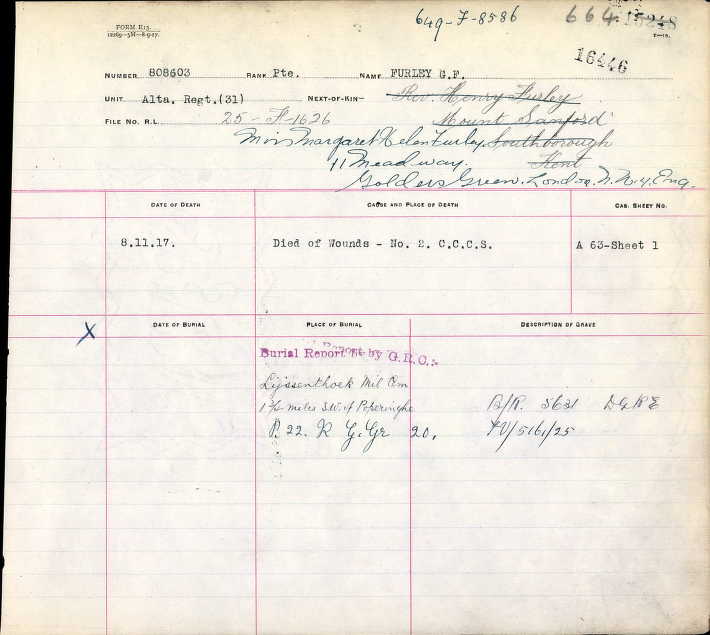 649-F-8586
664
FORM R13.
16446
NUMBER 808603 RANK Pte. NAME FURLEY G.F.
UNIT Alta. Regt.(31) NEXT-OF-KIN- Rev. Henry Furley
FILE NO. R.L. 25-F-1626 Mount Sanford
Miss Margaret Helen Furley, Southborough
11 Meadway. Kent
Golders Green. London. N.W.4, Eng.
DATE OF DEATH CAUSE AND PLACE OF DEATH CAS. SHEET NO.
8.11.17. Died of Wounds - No. 2. C.C.C.S. A 63-Sheet 1
X DATE OF BURIAL PLACE OF BURIAL DESCRIPTION OF GRAVE
Burial Report by G.R.C.:-
Lijssenthoek Mil Cem
1½ miles S.W. of Poperinghe B/R. 5631 DGR E
P. 22. R G. Gr 20. /5161/25